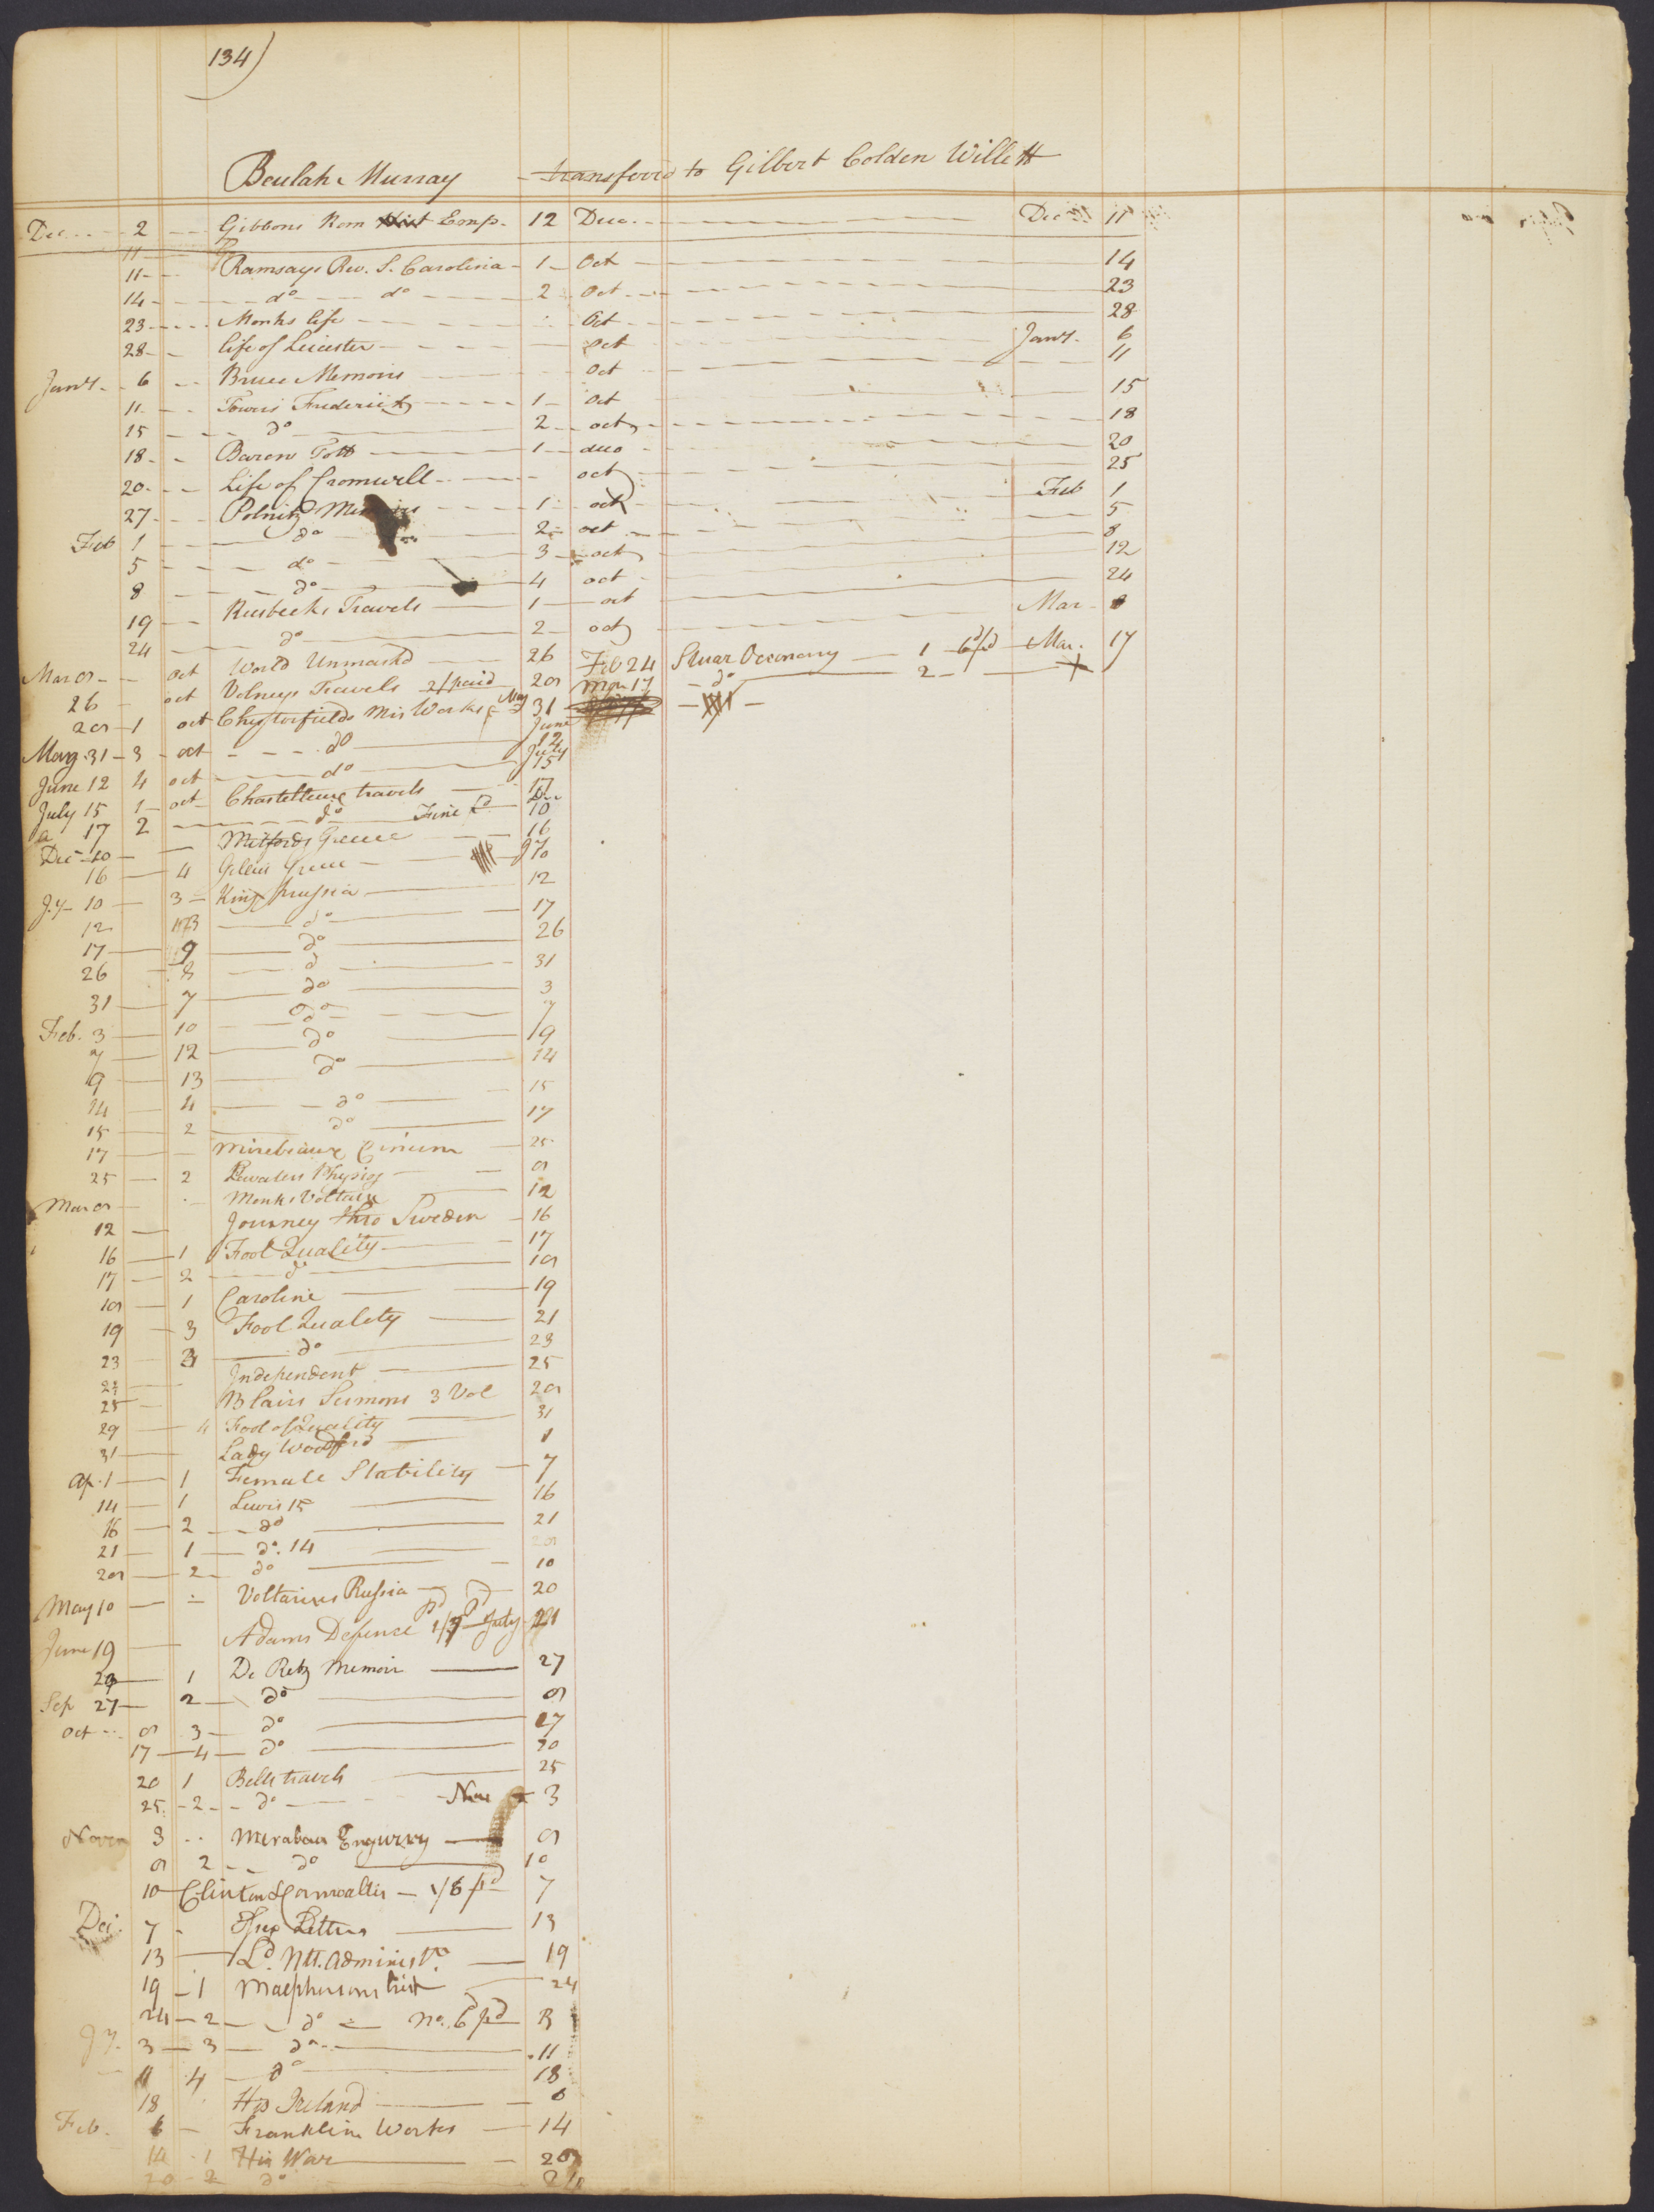 134)
Beulah Murray - transferrd to Gilbert Colden Willett
Dec 2 Gibbons Rom Emp. 12 Duo. Dec 11
11 Ramsays Rev. S. Carolina 1 Oct 14
14 do do 2 Oct 23
23 Monks life Oct 28
28 life of Leicester Oct Jany. 6
Jany. 6 Bruces Memoirs Oct 11
11 Towers Frederick 1 Oct 15
15 do 2 oct 18
18 Baron Tott 1 duo 20
20 Life of Cromwell oct 25
27 Polnitz Memoirs 1 oct Feb 1
Feb 1 do 2 oct 5
5 do 3 oct 8
8 do 4 oct 12
19 Reisbecks Travels 1 oct 24
24 do 2 oct Mar 8
Mar 8 oct World Unmaskd 26 Feb 24 Stuar Oeconomy 1 pd Mar. 17
26 oct Volneys Travels 2/ paid 28 Mar 17 do 2 +
28 1 oct Chesterfields Mis Works May 31
May 31 3 oct do June 12
June 12 4 oct do July 15
July 15 1 oct Chastelleux travels 17
17 2 do Fine pd 10
Dec 10 Mitfords Greece 16
16 4 Gillies Greece Jy 10
Jy 10 3 King Prussia 12
12 do 17
17 9 do 26
26 8 do 31
31 7 do 3
Feb. 3 10 do 7
7 12 do 9
9 13 do 14
14 4 do 15
15 2 do 17
17 Mirebiaux 25
25 2 Lavaters Physiog 8
Mar 8 Monks Voltaire 12
12 Journey thro Sweden 16
16 1 Fool Quality 17
17 2 do 18
18 1 Caroline 19
19 3 Fool Quality 21
23 do 23
Independent 25
25 Blairs Sermons 3 Vol 28
29 4 Fool of Quality 31
31 Lady 1
Ap. 1 1 Female Stability 7
14 1 Lewis 15 16
16 2 do 21
21 1 do. 14 28
28 2 do 10
May 10 Voltaires Russia 20
June 19 Adams Defence pd July 21
1 De Retz Memoir 27
Sep 27 2 do 8
Oct 8 3 do 17
17 4 do 20
20 1 Bells travels 25
25 2 do Nov 3
Novem 3 Mirabau Enquiry 8
8 2 do 10
10 Clinton & Cornwallis 1/8 pd 7
Dec. 7 Letters 13
13 Ld. Nth. Administn. 19
19 1 Macphersons hist 24
24 2 do No. 6 pd 3
Jy. 3 3 do 11
11 4 do 18
18 His Ireland 6
Feb. 6 Franklins Works 14
14 1 His War 20
20 2 do